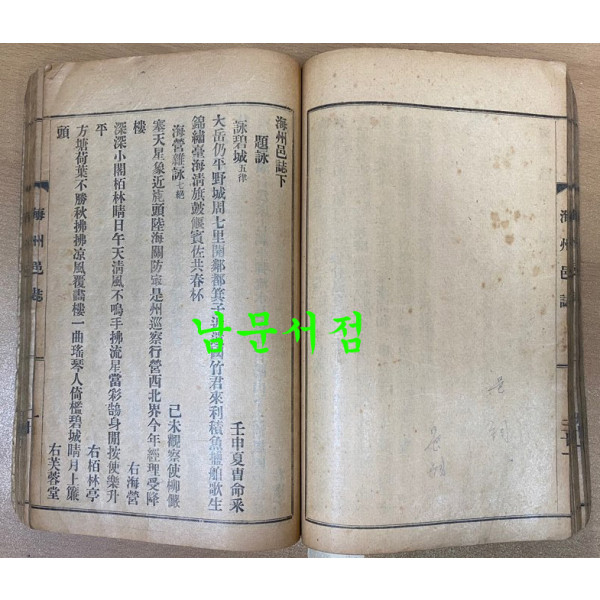 海州邑誌下
題詠
詠碧城 五律 壬申夏曺命采
大岳仍平野城周七里開鄒都箕子 竹君來利積魚 船歌生
錦繡臺海淸旗皷偃賓佐共春杯
海營雜詠 七絕 己未觀察使柳儼
塞天星象近旄頭陸海關防 是州巡察行營西北界今年經理受降
樓 右海營
深深小閣栢林晴日午天淸風不鳴手拂流星當彩鵠身閒按使樂升
平 右栢林亭
方塘荷葉不勝秋拂拂凉風覆畵樓一曲瑤琴人倚檻碧城晴月上簾
頭 右芙蓉堂
海州邑誌
一
海州邑誌
남문서점